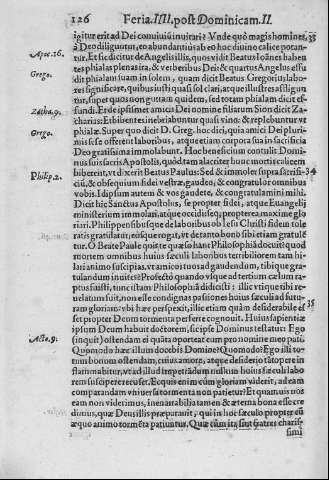 126 Feria. IIII. post Dominicam. II.
igitur erit ad Dei conuiuiũ inuitari? Vnde quò magis homines, 35
à Deo diliguntur, eo abundantiùs ab eo hoc diuino calice potan-
Apoc. 16. tur. Et sic dicitur de Angelis illis, quos vidit Beatus Ioánes haben
tes phialas plenas ira, & verberibus Dei: & quartus Angelus effu
Grego. dit phialam suam in solem, quam dicit Beatus Gregorius, labo-
res significare, quibus iusti quasi sol clari, atque illustres affligun
tur, super quos non guttam quidem, sed totam phialam dicit ef-
Zacha. 9. fundi. Erde ipsismet amicus Dei nomine filiarum Sion dicit Za-
charias: Et bibentes inebriabuntur quasi vino: & replebuntur vt
Grego. phialæ. Super quo dicit D. Greg. hoc dici, quia amici Dei pluri-
mis sese offerent laboribus, atque etiam corpora sua in sacrificia
Deo gratissima immolabunt. Hoc beneficium contulit Domi-
nus suis sacris Apostolis, quòd tam alacriter hunc mortis calicem
Philip. 2. biberent, vt dixerit Beatus Paulus: Sed & immolor supra sacrifi- 34
ciũ, & obsequium fidei vestræ, gaudeo, & congratulor omnibus
vobis. Idipsum autem & vos gaudete, & congratulamini mihi.
Dicit hic Sanctus Apostolus, se propter fidei, atque Euangelij
ministerium immolari, atque occidi: seq; propterea maxime glo
riari. Philippensibusque de laboribus ob Iesu Christi fidem tole
ratis gratulatur, eosque rogat, vt de tanto bono sibi etiam gratulē
tur. O Beate Paule quis te quæso hanc Philosophiā docuit? quod
mortem omnibus huius sæculi laboribus terribiliorem tam hi-
lari animo suscipias, vt amicos tuos ad gaudendum, tibique gra-
tulandum inuites? Profectò quando vsque ad tertium cælum ra-
ptus fuisti, tunc istam Philosophiā didicisti: illic vtique tibi re-
uelatum fuit, non esse condignas passiones huius sæculi ad futu-
ram gloriam: vbi hæc perspexisti, illic etiam quàm desiderabile es 35
set propter Deum tormenta perferre cognouit. Huius sapientiæ
ipsum Deum habuit doctorem, sic ipse Dominus testatur: Ego
Acta. 9. (inquit) ostendam ei quāta oporteat eum pro nomine meo pati.
Quomodo hæc illum docebis Domine? Quomodo? Ego illi to-
tum bonum ostendam, cuius amore, atque desiderio tātopere in
flammabitur, vt ad illud impetrādum nullum huius sæculi labo
rem suscipere recuset. Ex quis enim cùm gloriam viderit, ad eam
comparandam vniuersa tormenta non patietur? Et quamuis nos
eam non viderimus, inenarrabilia tamen & æterna bona esse cre
dimus, quæ Deus illis præparauit, qui in hoc sæculo propter eũ
æquo animo tormēta patiuntur. Quæ cùm ita sint fratres charis-
simi